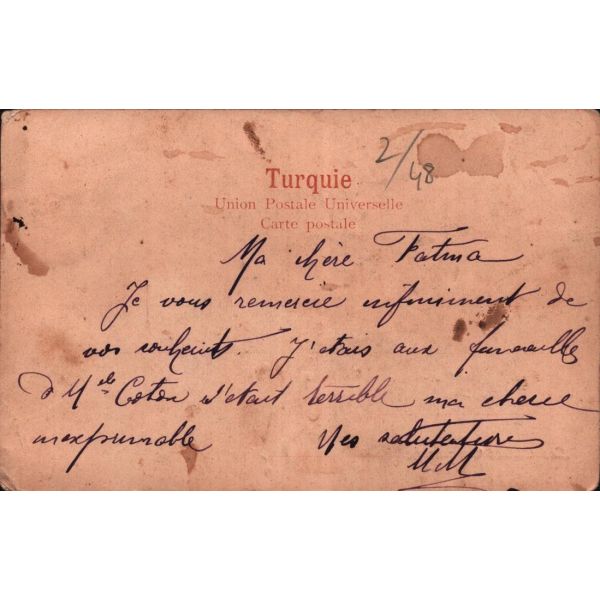 2/48
Turquie
Union Postale Universelle
Carte postale
Ma chère Fatma
Je vous remercie infiniment de
vos souhaits. J'étais aux funérailles
d Mlle Coton s'était terrible ma cherie
inexprimable Mes salutations
MM